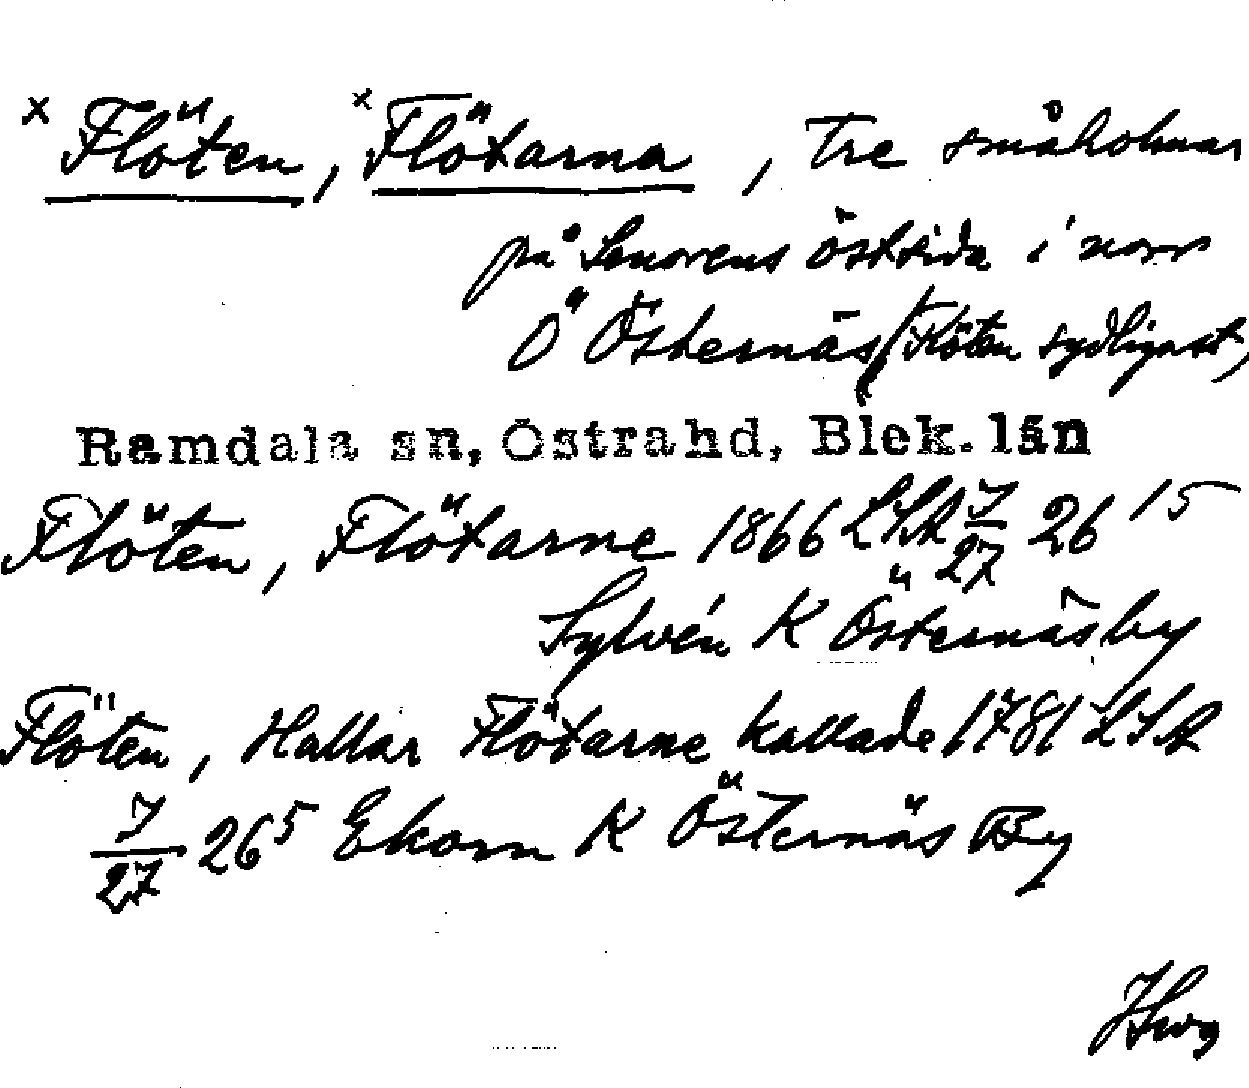 x Flöten, x Flötarna, tre småholmar
på Senorens östsida i norr
Ö Östernäs, Flöten sydligast,
Ramdala sn, Östrahd, Blek. län
Flöten, Flötarne 1866 LSA J/27 26 15
Sylvén K Östernäsby
Flöten, Hallar Flötarne kallade 1781 LSA
J/27 26 5 Ekorn K Östernäs By